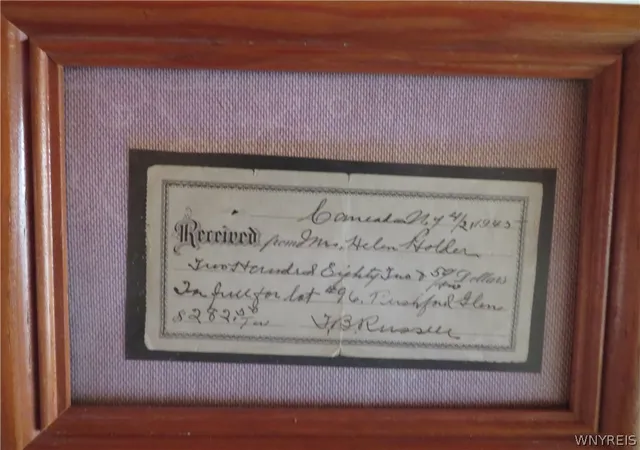 Caneadea N.Y 4/2, 1945
Received from Mrs. Helen Holder
Two Hundred Eighty Two & 50/100 Dollars
In full for lot #96. Rushford Glen
$282.50/100 F B Russell
WNYREIS